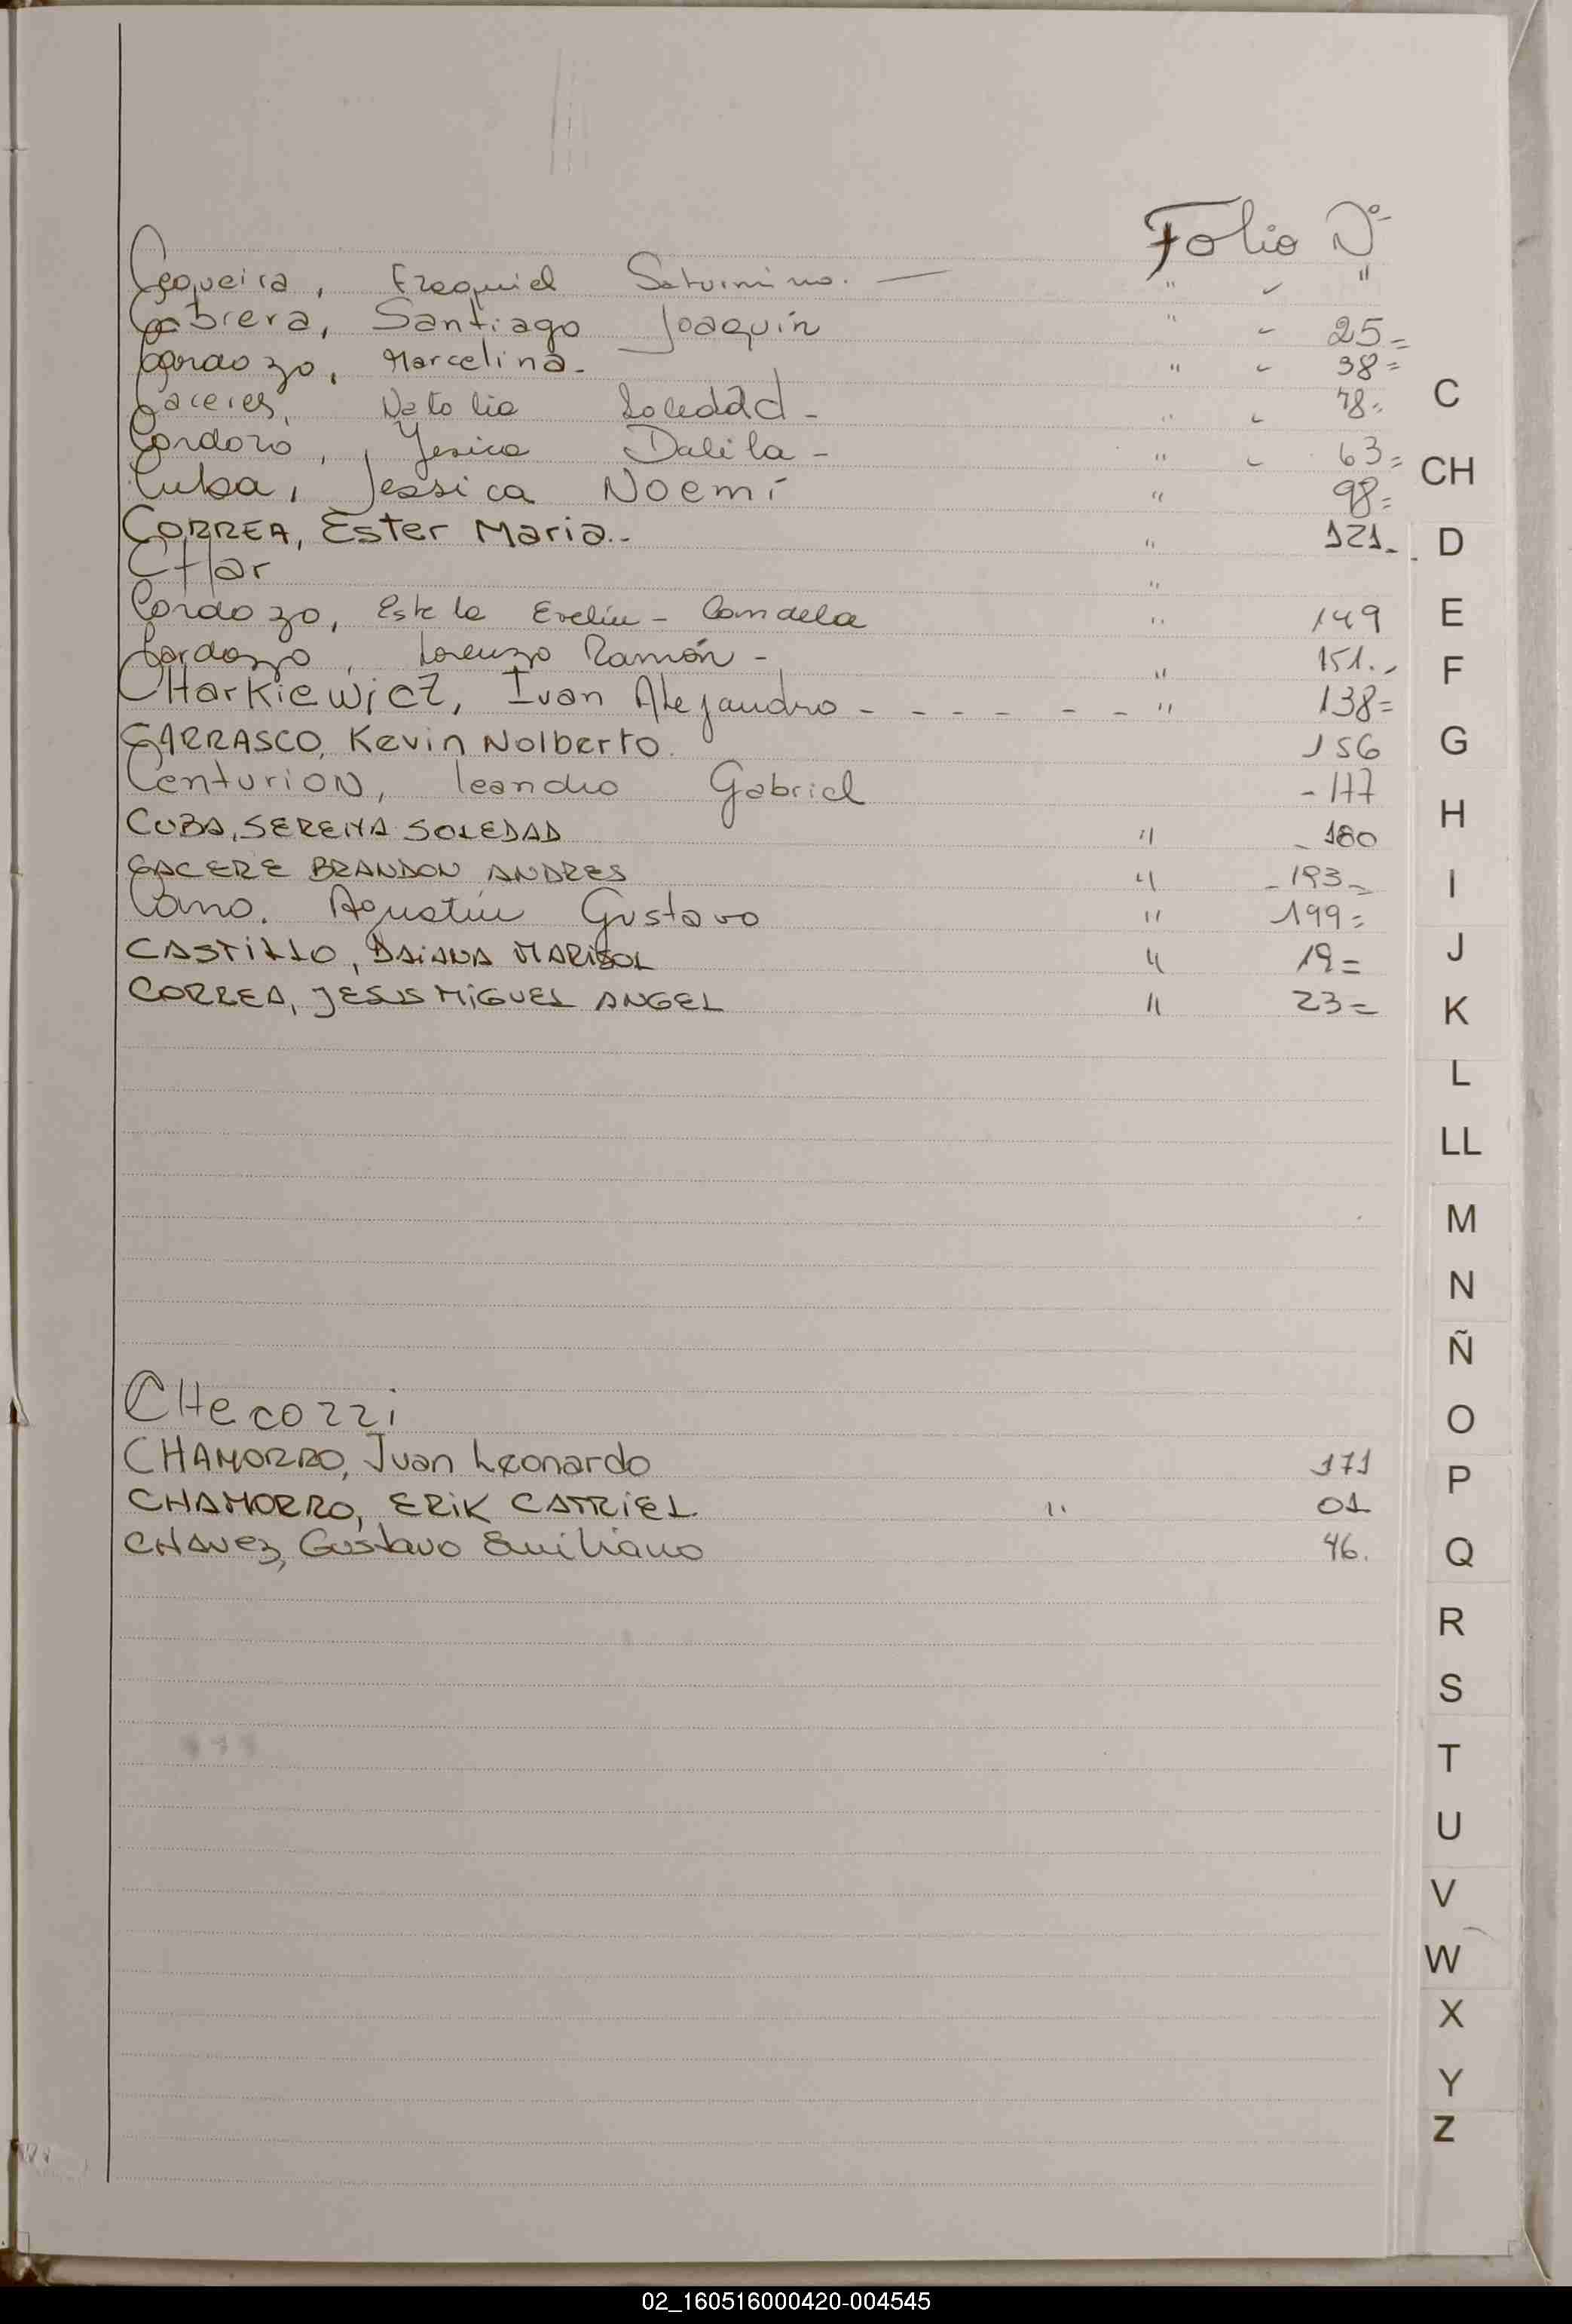 Folio Nº
Cequeira, Ezequiel Saturnino. — " " "
Cabrera, Santiago Joaquín " " 25=
Cardozo, Marcelina. " " 38=
Caceres, Natalia Soledad - " " 48=
Cardozo, Yesica Dalila - " " 63=
Cuba, Jessica Noemí " 98=
CORREA, Ester Maria.. " 121-
CHar "
Cardozo, Estela Evelin - Candela " 149
Cardozo, Lorenzo Ramón - 151.,
CHarkiewicz, Ivan Alejandro - - - - - - - " 138=
CARRASCO, Kevin Nolberto. 156
Centurion, Leandro Gabriel - 177
CUBA, SERENA SOLEDAD " - 180
CACERE BRANDON ANDRES " - 193=
Cano. Agustin Gustavo " 199=
CASTILLO, DAIANA MARISOL " 19=
CORREA, JESUS MIGUEL ANGEL " 23=
CHecozzi
CHAMORRO, Juan Leonardo 171
CHAMORRO, ERIK CATRIEL " 01
CHAVEZ, Gustavo Emiliano 46.
C
CH
D
E
F
G
H
I
J
K
L
LL
M
N
Ñ
O
P
Q
R
S
T
U
V
W
X
Y
Z
02_160516000420-004545